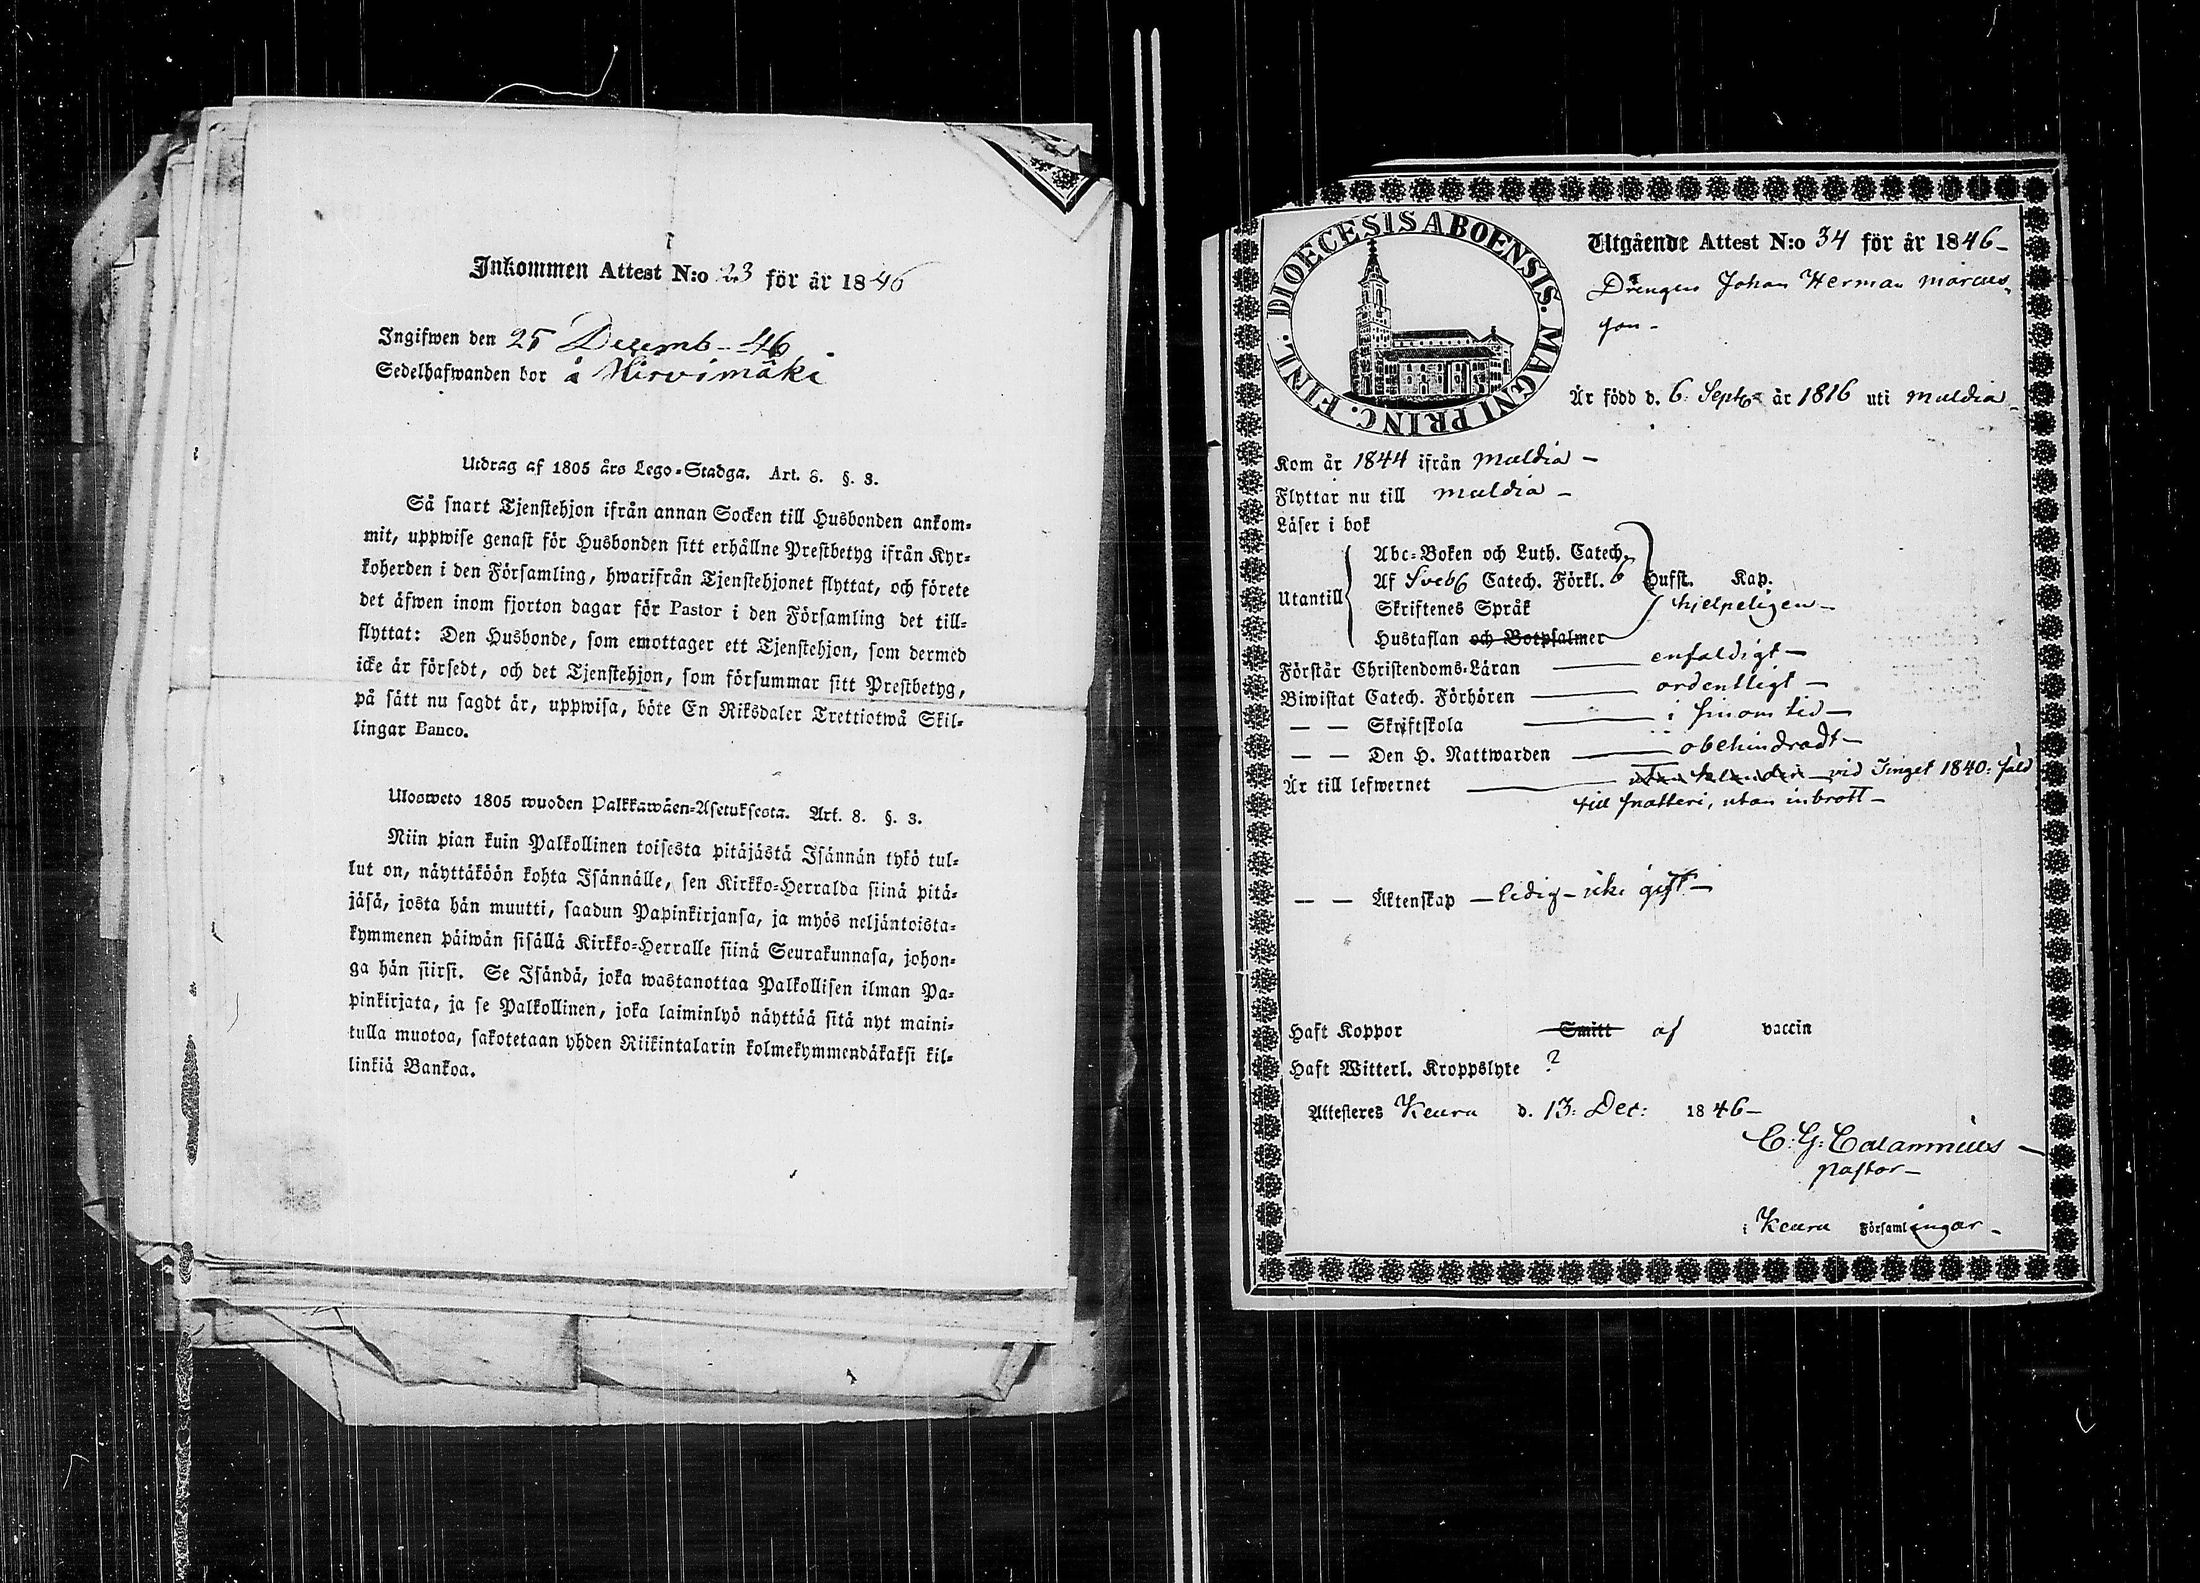 Inkommen Attest N:o 23 för år 1846
Ingifwen den 25 Decemb - 46
Sedelhafwanden bor å Hirvimäki
Utdrag af 1805 års Lego-Stadga. Art. 8. §. 3.
Så snart Tjenstehjon ifrån annan Socken till Husbonden ankom-
mit, uppwise genast för Husbonden sitt erhållne Prestbetyg ifrån Kyr-
koherden i den Församling, hwarifrån Tjenstehjonet flyttat, och förete
det äfwen inom fjorton dagar för Pastor i den Församling det till-
flyttat: Den Husbonde, som emottager ett Tjenstehjon, som dermed
icke är försedt, och det Tjenstehjon, som försummar sitt Prestbetyg,
på sätt nu sagdt är, uppwisa, böte En Riksdaler Trettiotwå Skil-
lingar Banco.
Ulosweto 1805 wuoden Palkkawäen-Asetuksesta. Art. 8. §. 3.
Niin pian kuin Palkollinen toisesta pitäjästä Isännän tykö tul-
lut on, näyttäköön kohta Isännälle, sen Kirkko-Herralda siinä pitä-
jäsä, josta hän muutti, saadun Papinkirjansa, ja myös neljäntoista-
kymmenen päiwän sisällä Kirkko-Herralle siinä Seurakunnasa, johon-
ga hän siirsi. Se Isändä, joka wastanottaa Palkollisen ilman Pa-
pinkirjata, ja se Palkollinen, joka laiminlyö näyttää sitä nyt maini-
tulla muotoa, sakotetaan yhden Riikintalarin kolmekymmendäkaksi kil-
linkiä Bankoa.
DIOECESIS ABOENSIS. MAGNI PRINC. FINL.
Utgående Attest N:o 34 för år 1846-
Drengen Johan Herman Marcus-
son-
Är född d. 6. Septbr år 1816 uti Muldia
Kom år 1844 ifrån Muldia -
Flyttar nu till Muldia -
Läser i bok
Utantill
Abc-Boken och Luth. Catech.
Af Sveb Catech. Förkl. 6 Hufst. Kap.
Skriftenes Språk hjelpeligen -
Hustaflan och Botpsalmer
Förstår Christendoms-Läran enfaldigt -
Biwistat Catech. Förhören ordentligt -
— — Skriftskola i sinom tid -
— — Den H. Nattwarden obehindradt -
Är till lefwernet vid Tinget 1840: fäld
till snatteri, utan inbrott -
— — Äktenskap - ledig - icke gift -
Haft Koppor Smitt af vaccin
Haft Witterl. Kroppslyte ?
Attesteres Keuru d. 13: Dec: 1846-
C: G: Calamnius
Pastor -
i Keuru Församlingar -